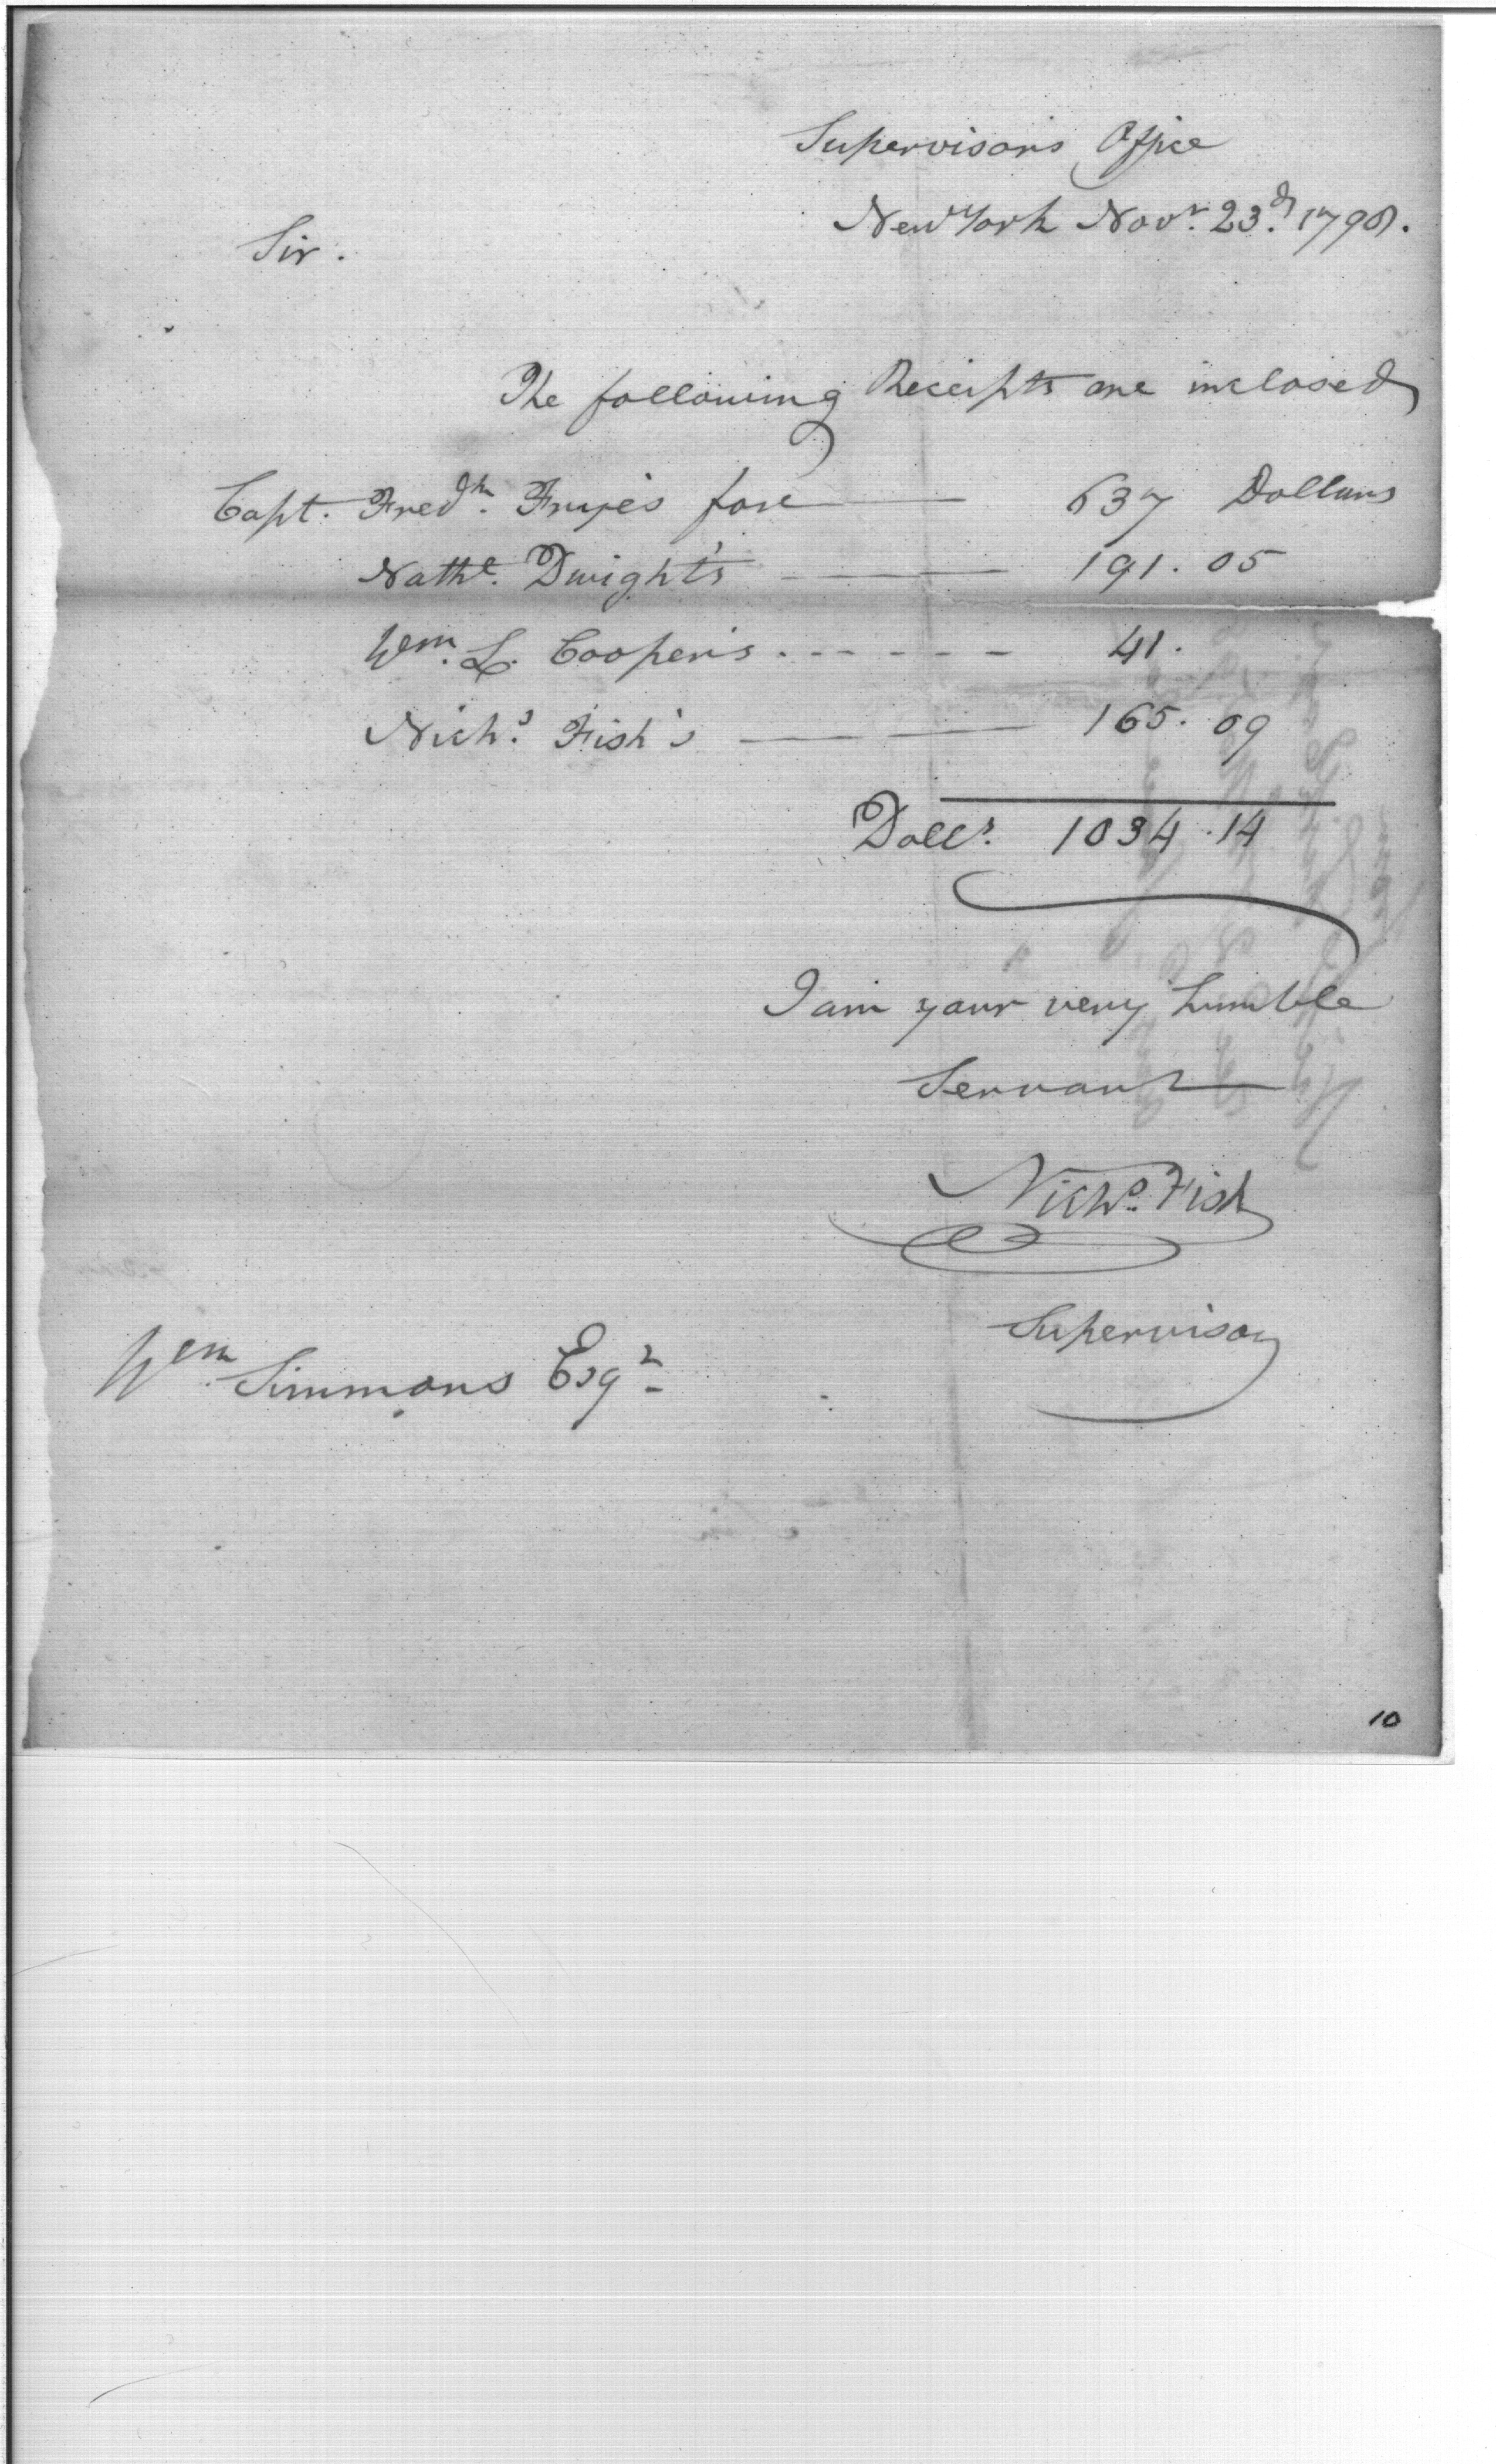 Supervisor's Office
New York Nov.r 23.d 1798.
Sir.
The following Receipts are inclosed
Capt. Fred.k Frye's for — 637 Dollars
Nath.l Dwight's — 191.05
Wm. L. Cooper's - - - - - - 41.
Nich.s Fish's — 165.09
Doll.s 1034.14
I am your very humble
Servant
Nich.s Fish
Supervisor
Wm Simmons Esq.r
10